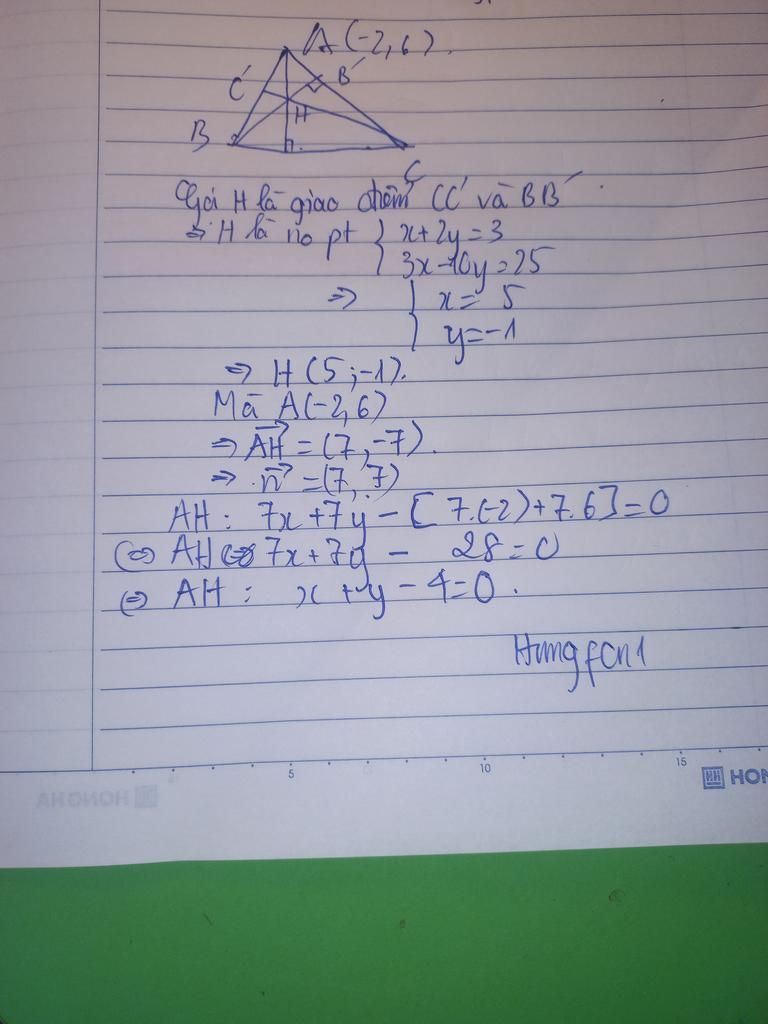 A(-2,6).
C'
B'
H
B
C
Gọi H là giao điểm CC' và BB'.
=> H là no pt { x+2y=3
3x-10y=25
=> { x= 5
y=-1
=> H(5;-1).
Mà A(-2,6)
=> AH = (7,-7).
=> n = (7,7)
AH: 7x+7y-[7.(-2)+7.6]=0
<=> AH <=> 7x+7y - 28=0
<=> AH: x+y-4=0.
Hungfcn1
5 10 15
HONG HA
HON